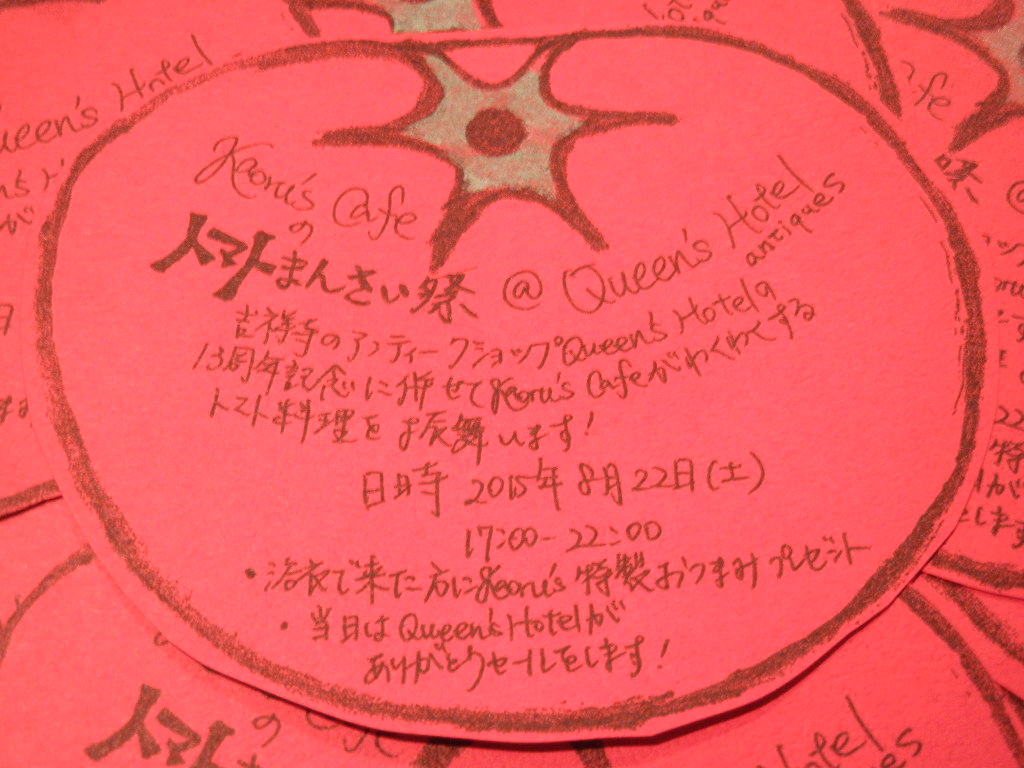 Kaoru's Cafe
の
トマトまんさい祭 @ Queen's Hotel
antiques
吉祥寺のアンティークショップQueen's Hotelの
13周年記念に併せてKaoru's Cafeがわくわくする
トマト料理をお振舞います!
日時 2015年8月22日(土)
17:00-22:00
・浴衣で来た方にKaoru's 特製おつまみプレゼント
・当日はQueen's Hotelが
ありがとうセールをします!
Queen's Hotel
トマト
の